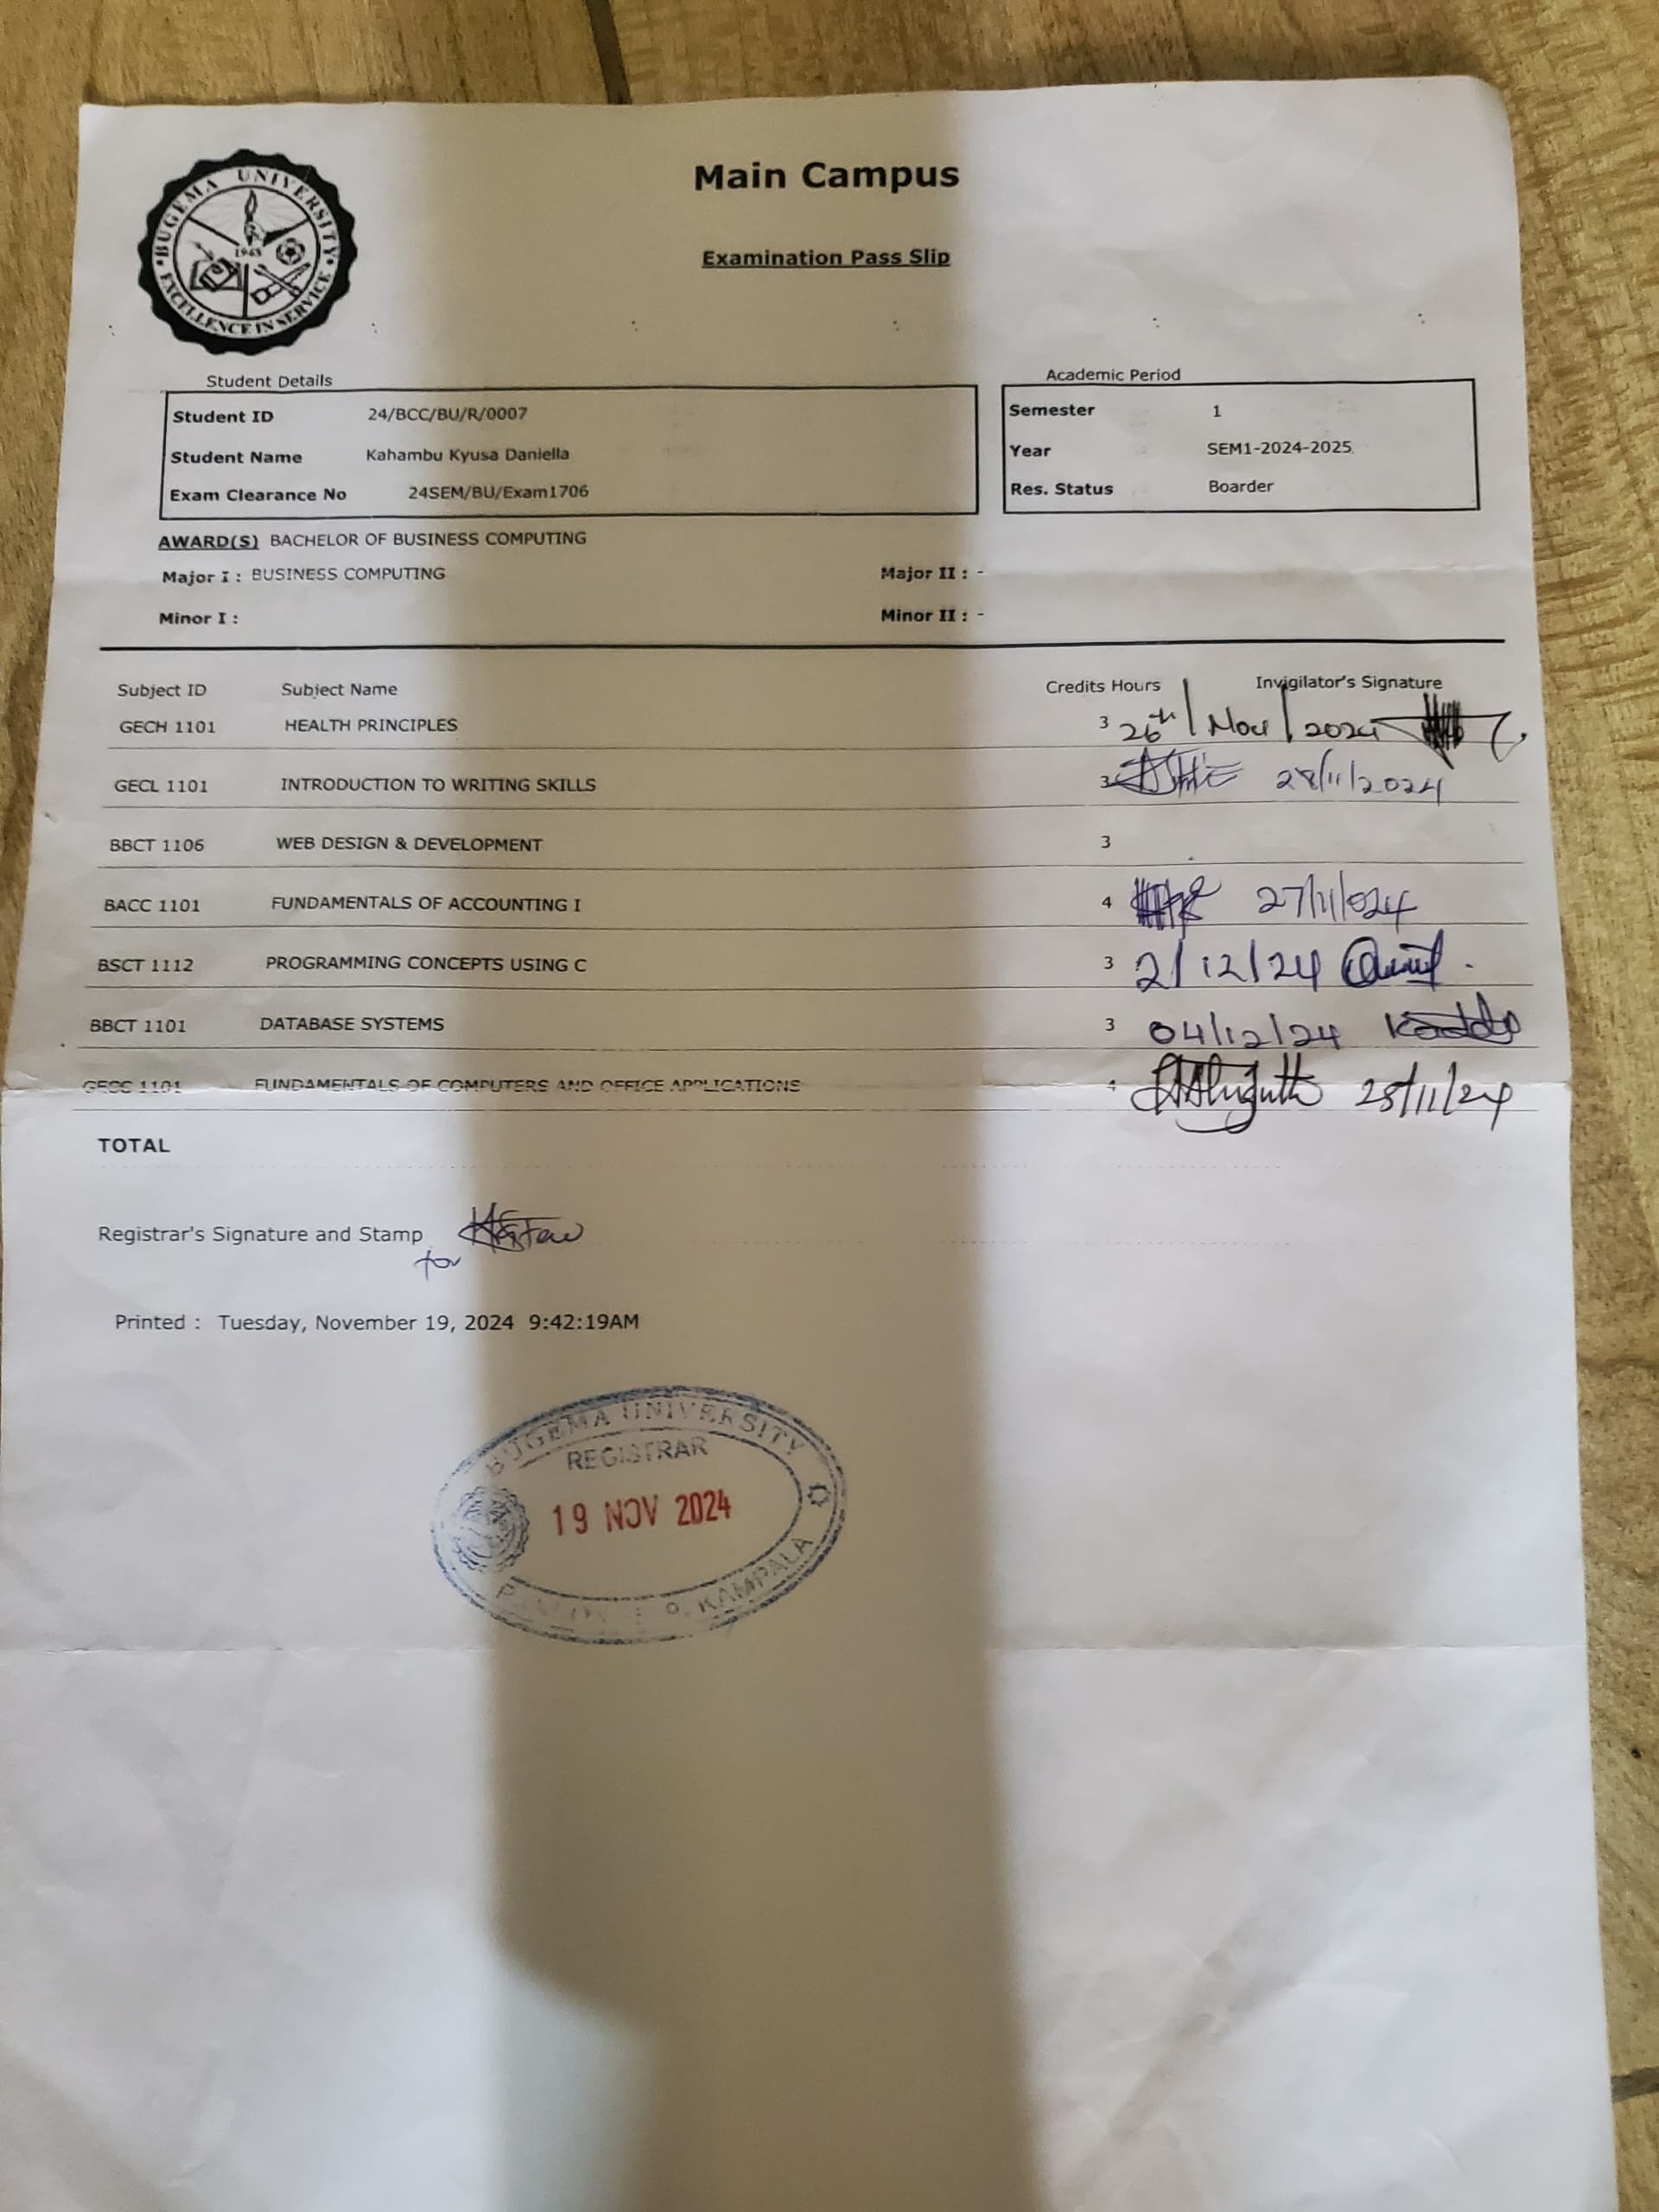 BUGEMA UNIVERSITY
1948
EXCELLENCE IN SERVICE
Main Campus
Examination Pass Slip
Student Details
Student ID 24/BCC/BU/R/0007
Student Name Kahambu Kyusa Daniella
Exam Clearance No 24SEM/BU/Exam1706
Academic Period
Semester 1
Year SEM1-2024-2025
Res. Status Boarder
AWARD(S) BACHELOR OF BUSINESS COMPUTING
Major I : BUSINESS COMPUTING Major II : -
Minor I : Minor II : -
Subject ID Subject Name Credits Hours Invigilator's Signature
GECH 1101 HEALTH PRINCIPLES 3 26th/Nov/2024
GECL 1101 INTRODUCTION TO WRITING SKILLS 3 28/11/2024
BBCT 1106 WEB DESIGN & DEVELOPMENT 3
BACC 1101 FUNDAMENTALS OF ACCOUNTING I 4 27/11/2024
BSCT 1112 PROGRAMMING CONCEPTS USING C 3 2/12/24
BBCT 1101 DATABASE SYSTEMS 3 04/12/24
GESC 1101 FUNDAMENTALS OF COMPUTERS AND OFFICE APPLICATIONS 4 25/11/24
TOTAL
Registrar's Signature and Stamp
for
Printed : Tuesday, November 19, 2024 9:42:19AM
BUGEMA UNIVERSITY
REGISTRAR
19 NOV 2024
KAMPALA